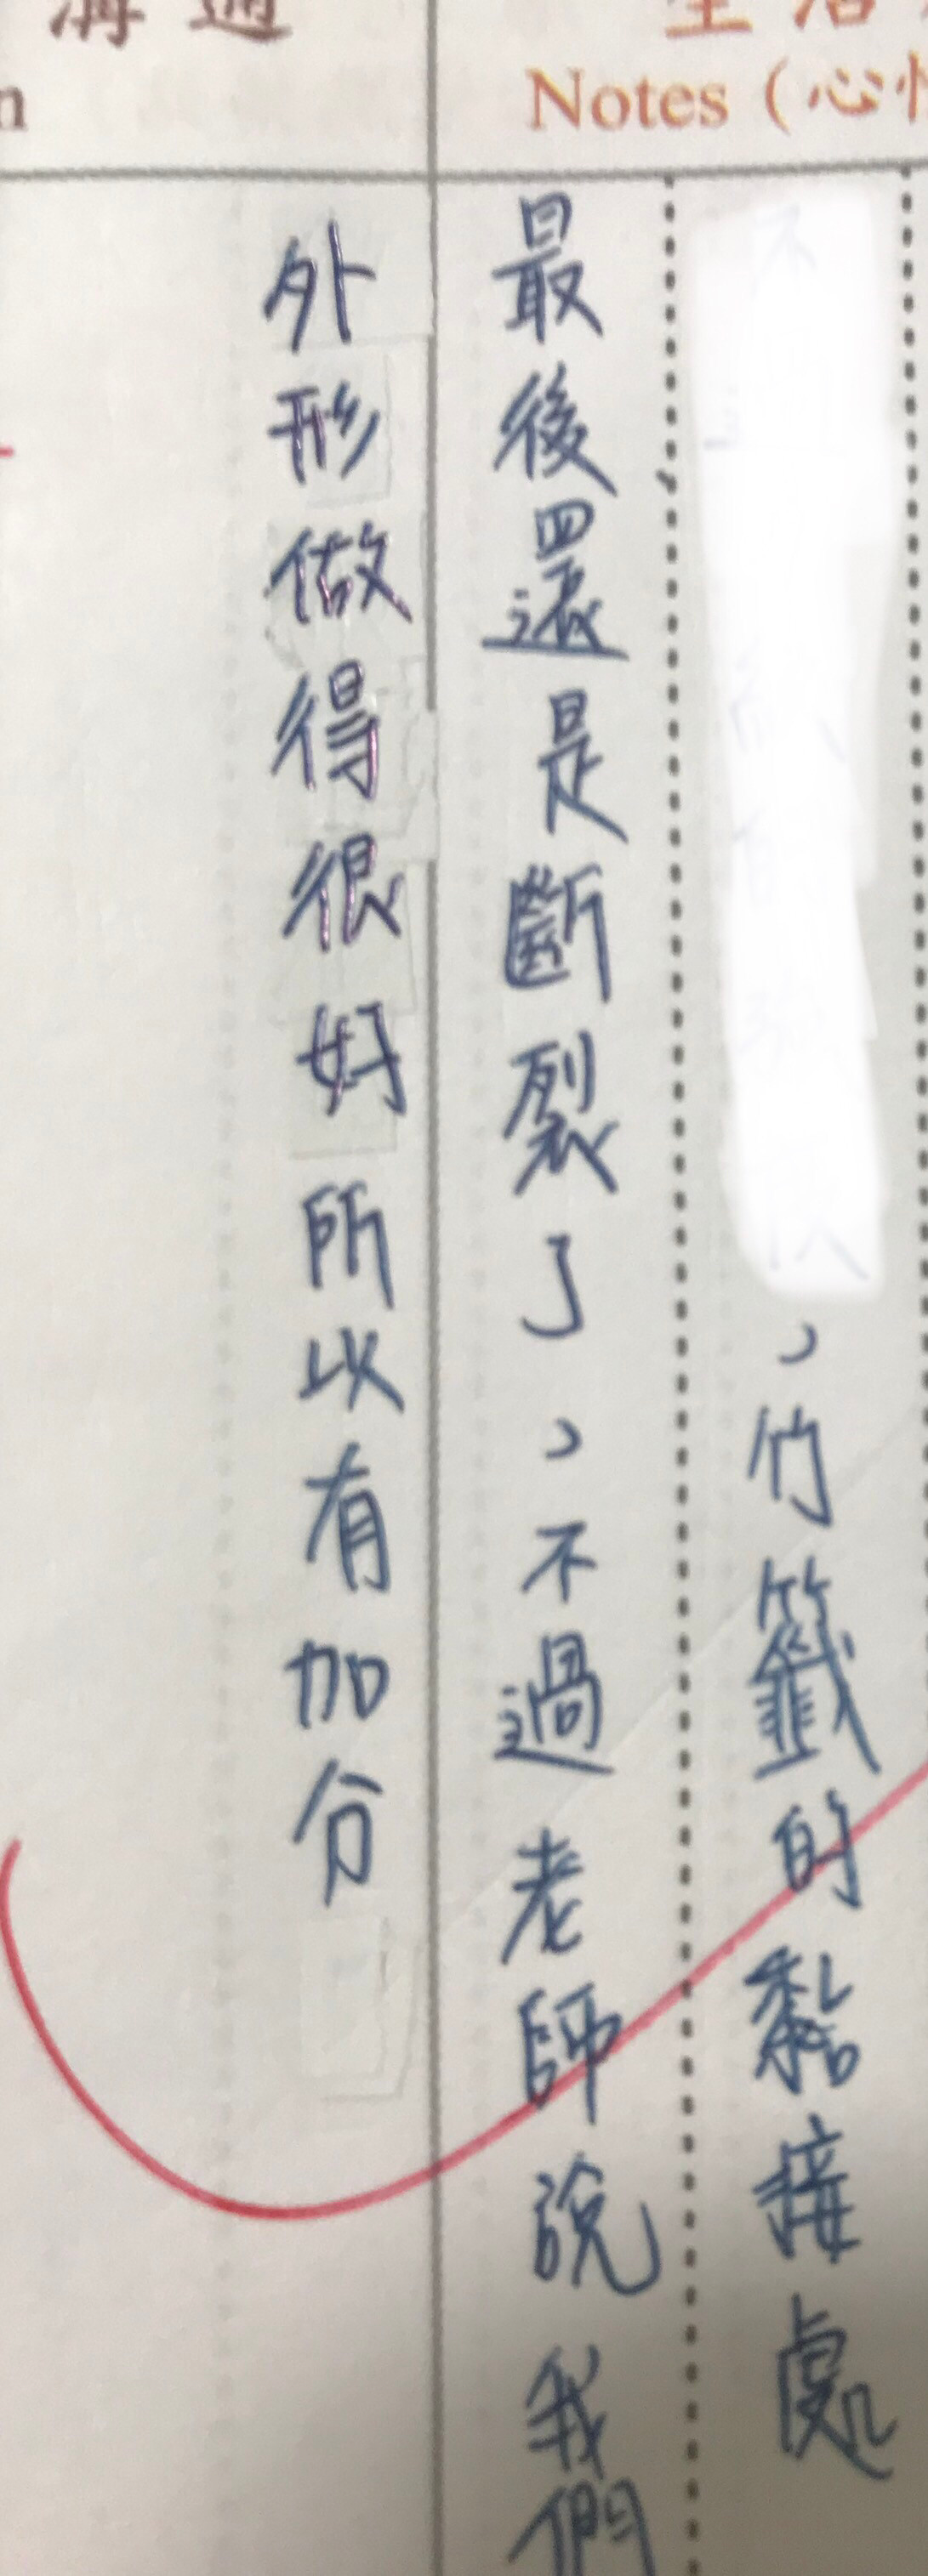 溝通
生活
Notes (心情
，竹籤的黏接處
最後還是斷裂了，不過老師說我們
外形做得很好所以有加分